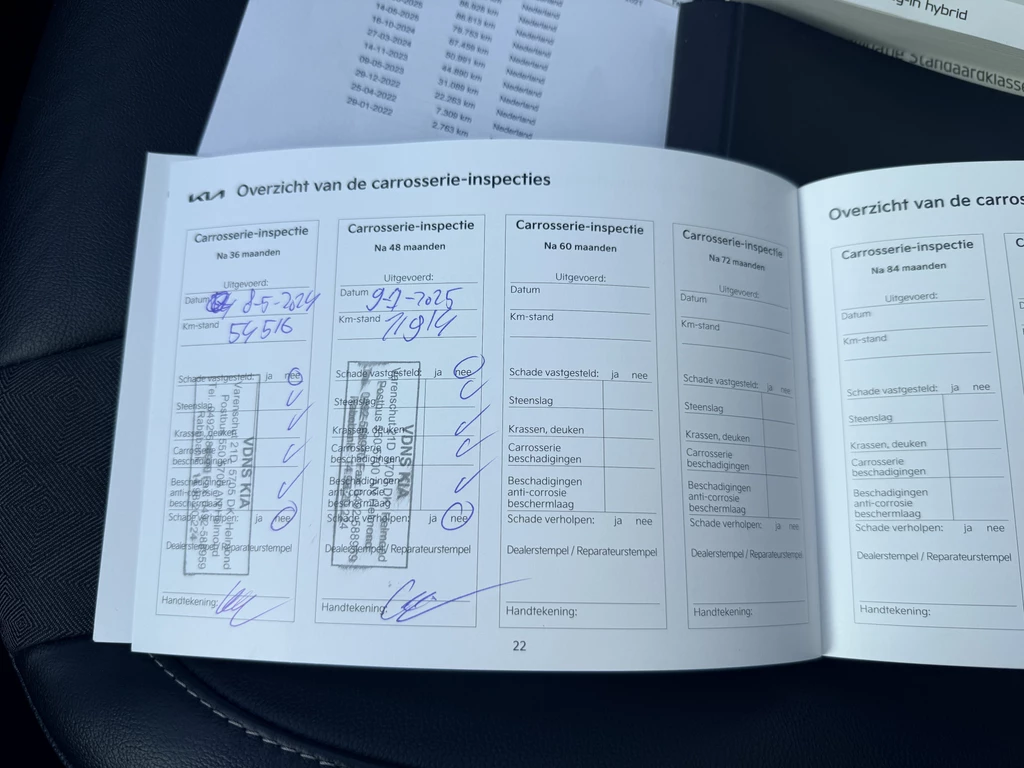 14-05-2025
16-10-2024
27-03-2024
14-11-2023
09-05-2023
29-12-2022
25-04-2022
29-01-2022
31.089 km
22.263 km
7.309 km
2.763 km
Nederland
Nederland
Nederland
Nederland
Nederland
Nederland
Nederland
Nederland
hybrid
Standaardklasse
KIA Overzicht van de carrosserie-inspecties
Carrosserie-inspectie
Na 36 maanden
Uitgevoerd:
Datum 8-5-2024
Km-stand 54516
Schade vastgesteld: ja nee
Steenslag
Krassen, deuken
Carrosserie
beschadigingen
Beschadigingen
anti-corrosie
Schade verholpen: ja nee
VDNS KIA
Dealerstempel / Reparateurstempel
Handtekening:
Carrosserie-inspectie
Na 48 maanden
Uitgevoerd:
Datum
Km-stand
Schade vastgesteld: ja nee
Steenslag
Krassen, deuken
Carrosserie
beschadigingen
Beschadigingen
anti-corrosie
beschermlaag
Schade verholpen: ja nee
VDNS KIA
Dealerstempel / Reparateurstempel
Handtekening:
Carrosserie-inspectie
Na 60 maanden
Uitgevoerd:
Datum
Km-stand
Schade vastgesteld: ja nee
Steenslag
Krassen, deuken
Carrosserie
beschadigingen
Beschadigingen
anti-corrosie
beschermlaag
Schade verholpen: ja nee
Dealerstempel / Reparateurstempel
Handtekening:
Carrosserie-inspectie
Na 72 maanden
Uitgevoerd:
Datum
Km-stand
Schade vastgesteld: ja nee
Steenslag
Krassen, deuken
Carrosserie
beschadigingen
Beschadigingen
anti-corrosie
beschermlaag
Schade verholpen: ja nee
Dealerstempel / Reparateurstempel
Handtekening:
22
Overzicht van de carros
Carrosserie-inspectie
Na 84 maanden
Uitgevoerd:
Datum
Km-stand
Schade vastgesteld: ja nee
Steenslag
Krassen, deuken
Carrosserie
beschadigingen
Beschadigingen
anti-corrosie
beschermlaag
Schade verholpen: ja nee
Dealerstempel / Reparateurstempel
Handtekening: